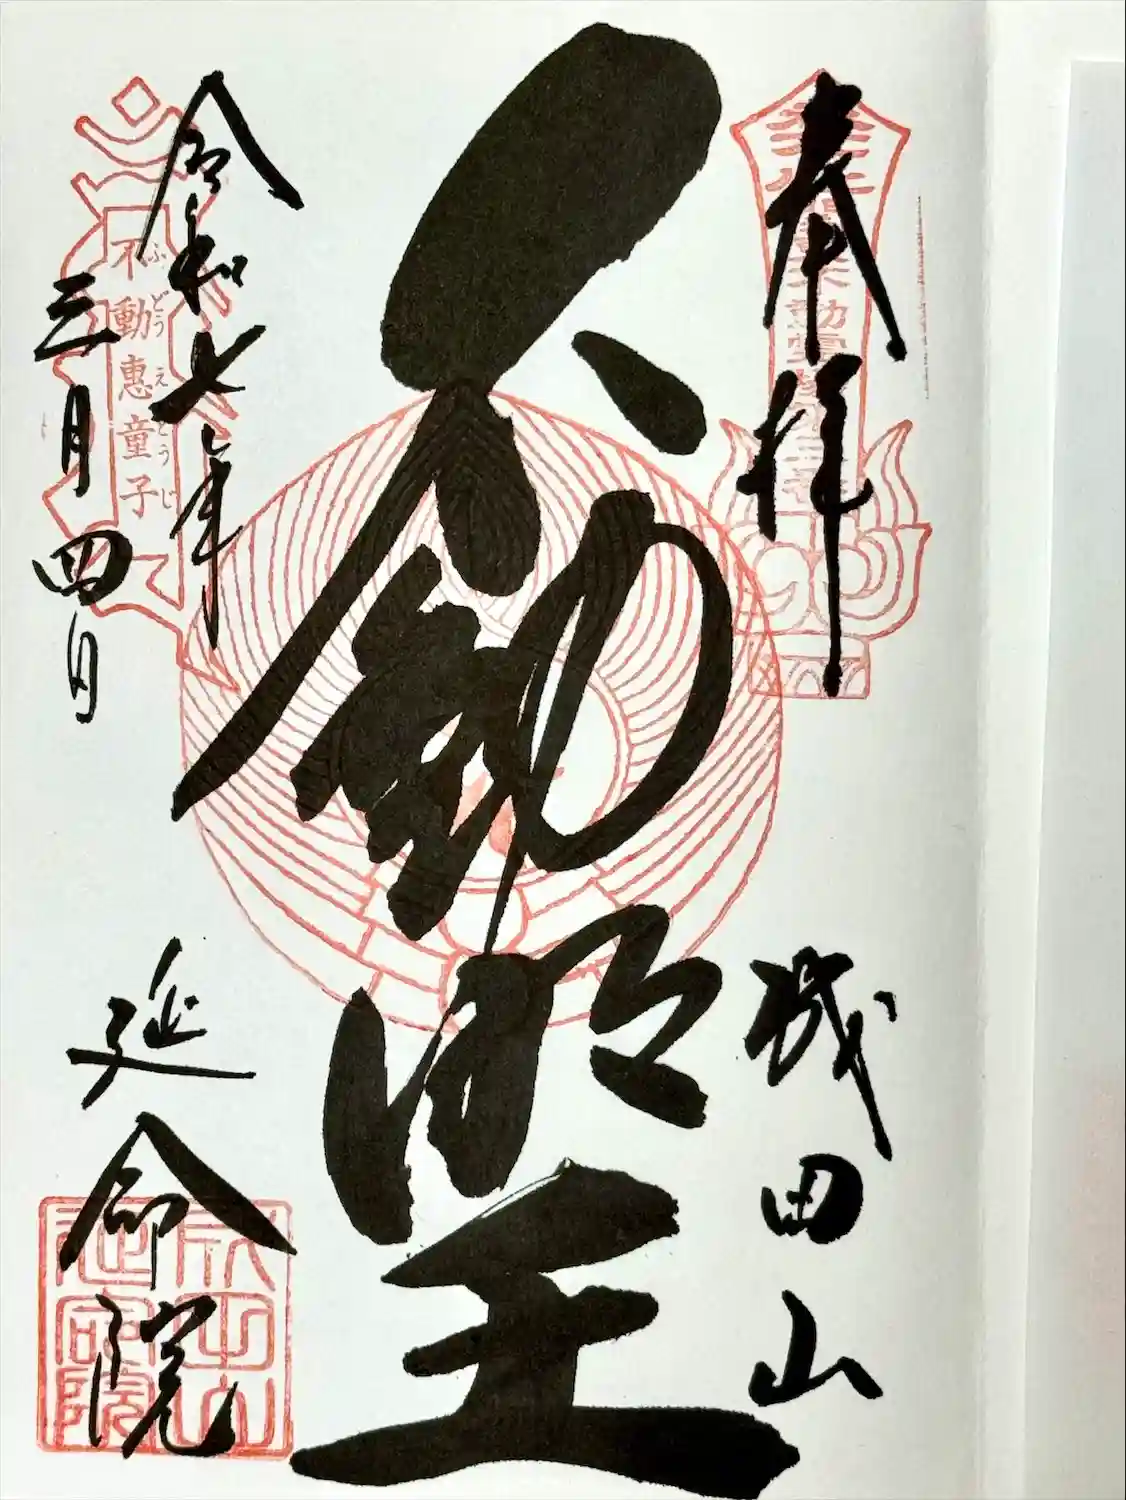 奉拝
城田山
不動明王
令和七年
三月四日
不動惠童子
ふどうえどうじ
延命院